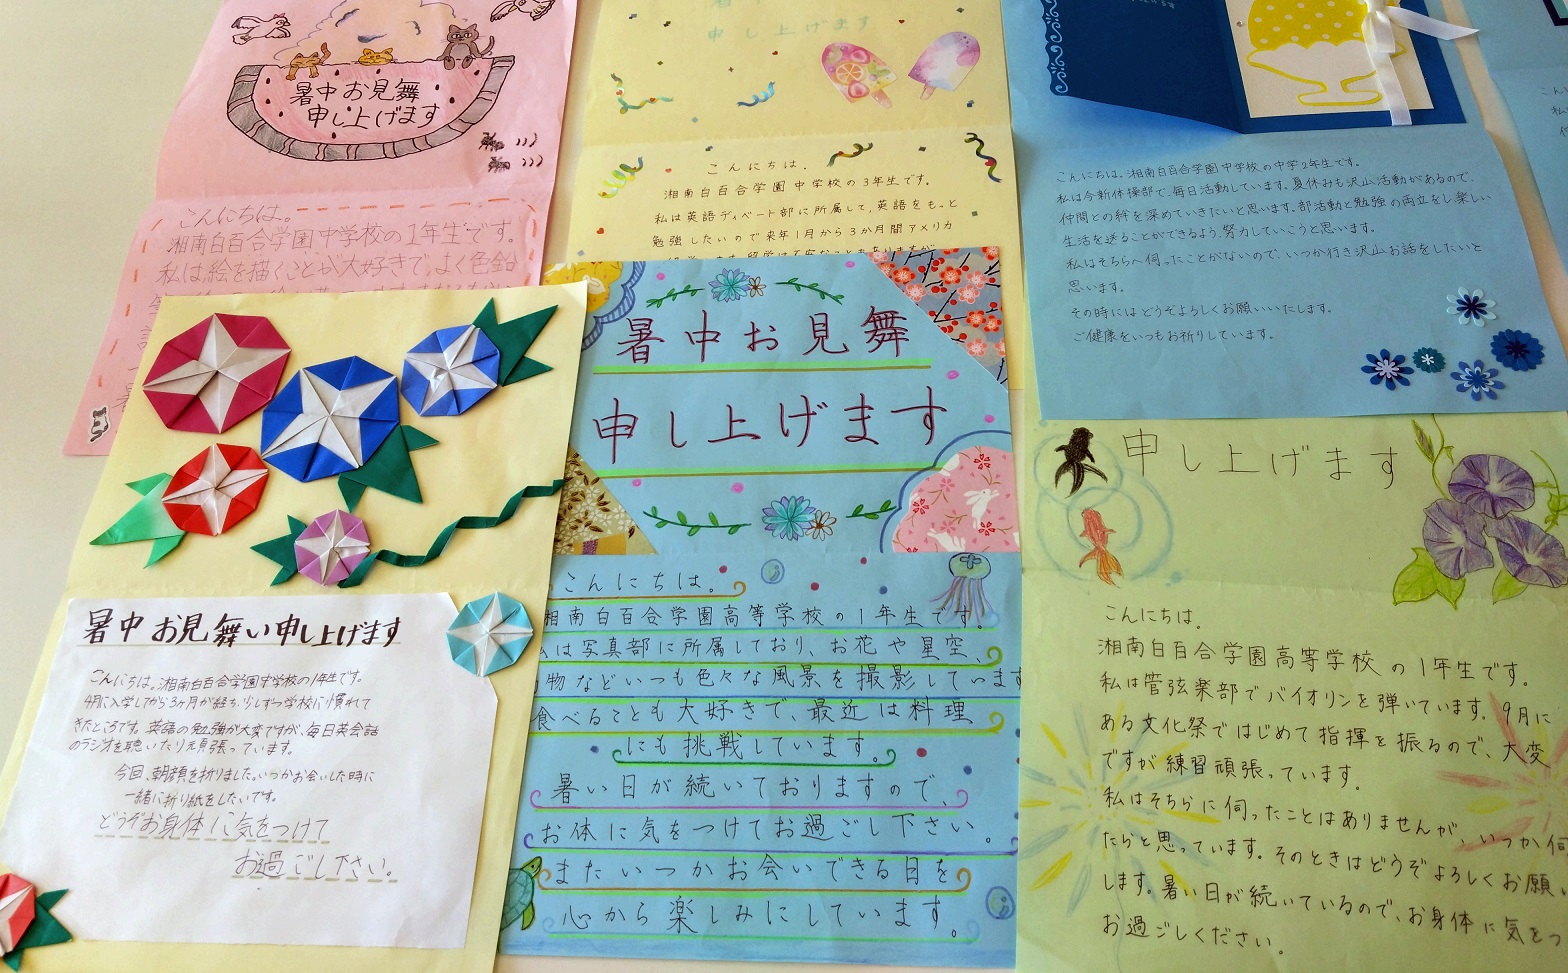 暑中お見舞
申し上げます
こんにちは。
湘南白百合学園中学校の1年生です。
私は絵を描くことが大好きで、よく色鉛
申し上げます
こんにちは.
湘南白百合学園中学校の3年生です。
私は英語ディベート部に所属して、英語をもっと
勉強したいので来年1月から3か月間アメリカ
こんにちは。湘南白百合学園中学校の中学2年生です。
私は今新体操部で、毎日活動しています。夏休みも沢山活動があるので、
仲間との絆を深めていきたいと思います。部活動と勉強の両立をし楽しい
生活を送ることができるよう、努力していこうと思います。
私はそちらへ伺ったことがないので、いつか行き沢山お話をしたいと
思います。
その時にはどうぞよろしくお願いいたします。
ご健康をいつもお祈りしています。
暑中お見舞い申し上げます
こんにちは。湘南白百合学園中学校の1年生です。
4月に入学してから3か月が経ち、少しずつ学校に慣れて
きたところです。英語の勉強が大変ですが、毎日英会話
のラジオを聴いたり頑張っています。
今回、朝顔を折りました。いつかお会いした時に
一緒に折り紙をしたいです。
どうぞお身体に気をつけて
お過ごし下さい。
暑中お見舞
申し上げます
こんにちは。
湘南白百合学園高等学校の1年生です
は写真部に所属しており、お花や星空、
物などいつも色々な風景を撮影しています
食べることも大好きで、最近は料理
にも挑戦しています。
暑い日が続いておりますので、
お体に気をつけてお過ごし下さい。
またいつかお会いできる日を
心から楽しみにしています。
申し上げます
こんにちは.
湘南白百合学園高等学校の1年生です。
私は管弦楽部でバイオリンを弾いています。9月に
ある文化祭ではじめて指揮を振るので、大変
ですが練習頑張っています。
私はそちらに伺ったことはありませんが、いつか伺
たらと思っています。そのときはどうぞよろしくお願い
します。暑い日が続いているので、お身体に気をつ
お過ごしください。